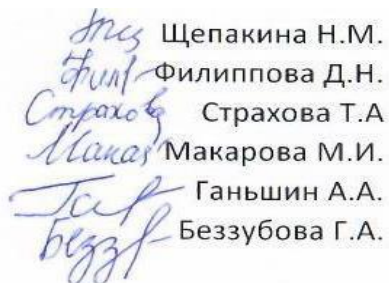 Щепакина Н.М.
Филиппова Д.Н.
Страхова Страхова Т.А
Макарова М.И.
Ганьшин А.А.
Беззубова Г.А.